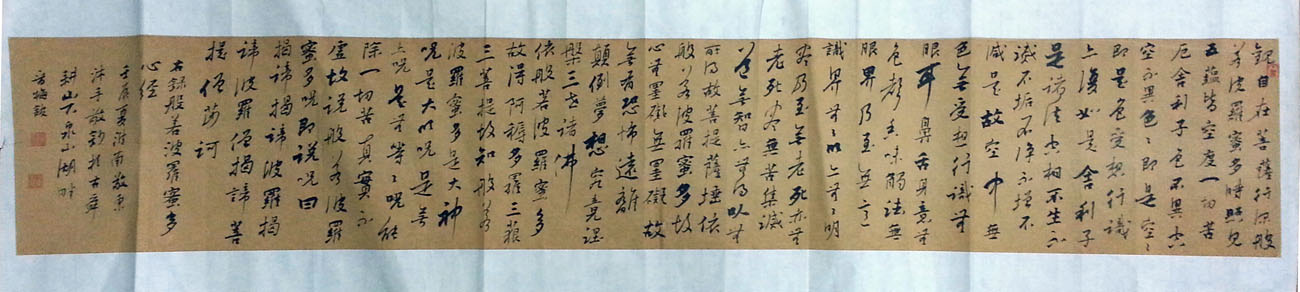 觀自在菩薩行深般
若波羅蜜多時照見
五蘊皆空度一切苦
厄舍利子色不異空
空不異色色即是空空
即是色受想行識
亦復如是舍利子
是諸法空相不生不
滅不垢不淨不增不
減是故空中無
色無受想行識無
眼耳鼻舌身意無
色聲香味觸法無
眼界乃至無意
識界無無明亦無無明
盡乃至無老死亦無
老死盡無苦集滅
道無智亦無得以無
所得故菩提薩埵依
般若波羅蜜多故
心無罣礙無罣礙故
無有恐怖遠離
顛倒夢想究竟涅
槃三世諸佛
依般若波羅蜜多
故得阿耨多羅三藐
三菩提故知般若
波羅蜜多是大神
咒是大明咒是無
上咒是無等等咒能
除一切苦真實不
虛故說般若波羅
蜜多咒即說咒曰
揭諦揭諦波羅揭
諦波羅僧揭諦菩
提僧莎訶
右錄般若波羅蜜多
心經
壬辰夏
沐手敬鈔於古章